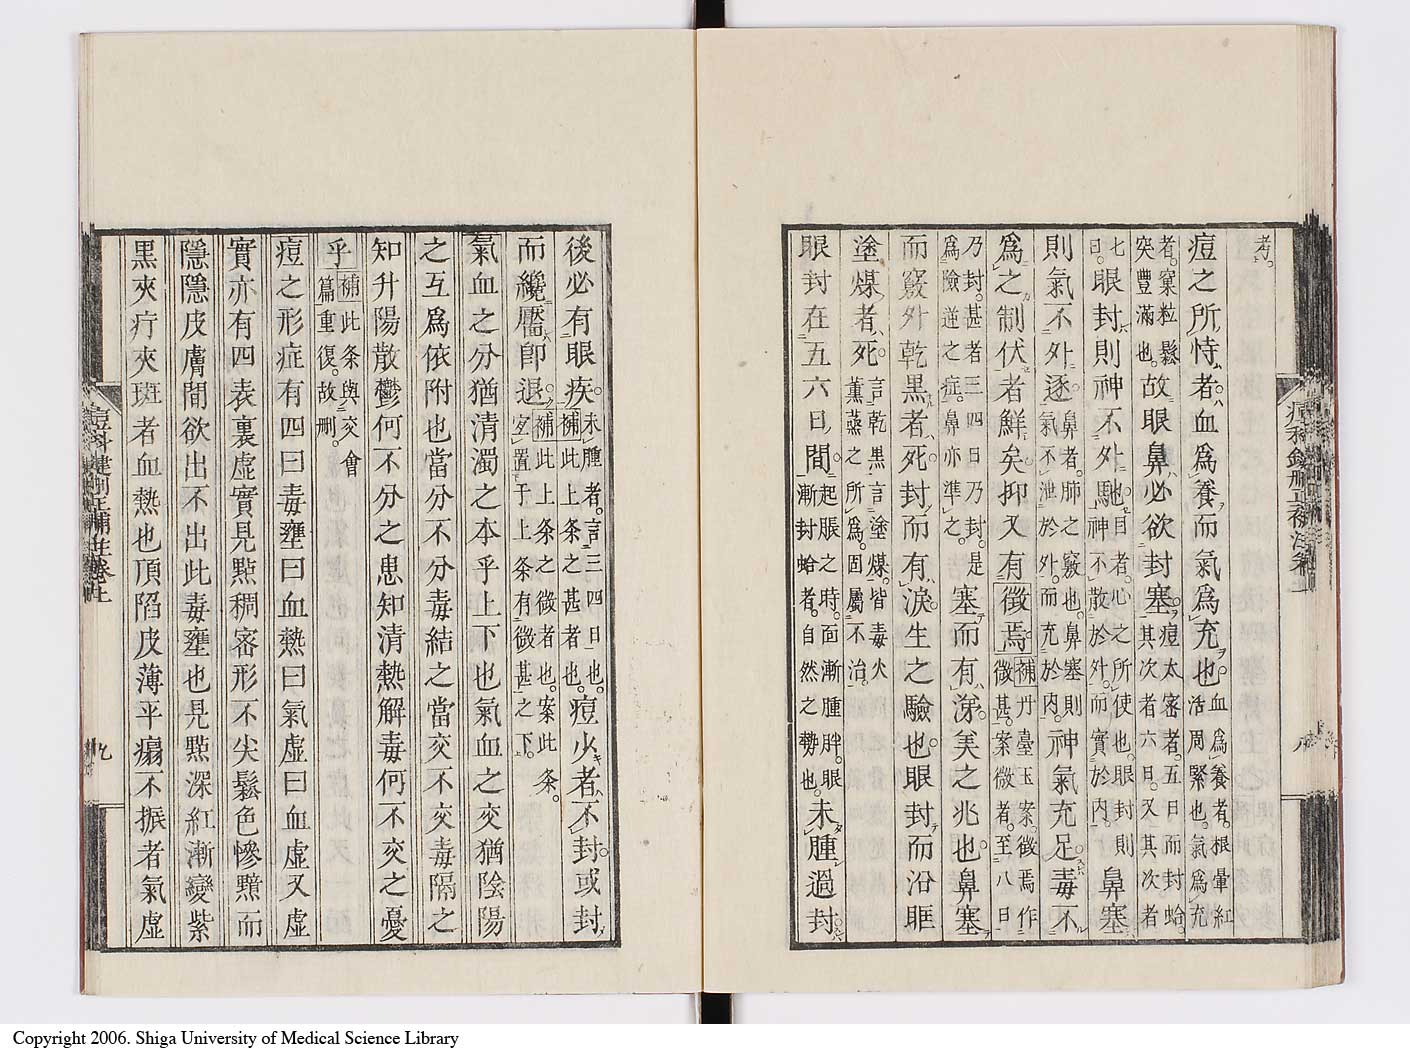 考。
痘之所恃者血爲養而氣爲充也。血爲養者。根暈紅活周緊也。氣爲充
者。窠粒鬆突豐滿也。故眼鼻必欲封塞。痘太密者。五日而封蛤。其次者六日。又其次者
七日。眼封則神不外馳也。目者。心之所使也。眼封則神不散於外。而實於内。鼻塞
則氣不外逐。鼻者。肺之竅也。鼻塞則氣不泄於外。而充於内。神氣充足毒不
爲之制伏者鮮矣抑又有徴焉。補丹臺玉案。徴焉作徴甚。案徴者。至八日
乃封。甚者三四日乃封。是爲險逆之症。鼻亦準之。塞而有涕。美之兆也鼻塞
而竅外乾黒者死封而有淚生之驗也。眼封而沿眶
塗煤者。死。言乾黒。言塗煤。皆毒火薫蒸之所爲。固屬不治。
眼封在五六日間。起脹之時。面漸腫胖。眼漸封蛤者。自然之勢也。未腫過封。
後必有眼疾。未腫者。言三四日也。補此上条之甚者也。痘少者不封。或封
而纔靨卽退。補此上条之徴者也。案此条。宜置于上条有徴甚之下。
氣血之分猶清濁之本乎上下也氣血之交猶陰陽
之互爲依附也當分不分毒結之當交不交毒隔之
知升陽散鬱何不分之患知清熱解毒何不交之憂
乎。補此条與交會篇重復。故刪。
痘之形症有四曰毒壅曰血熱曰氣虚曰血虚又虚
實亦有四表裏虚實見點稠密形不尖鬆色慘黯而
隱隱皮膚間欲出不出此毒壅也見點深紅漸變紫
黒夾疔夾斑者血熱也頂陷皮薄平塌不振者氣虚
痘科鍵刪正補註卷上
九